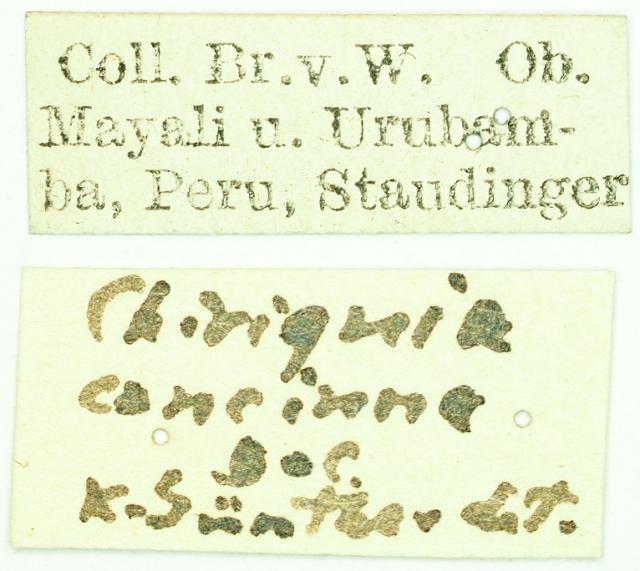 Coll. Br.v.W. Ob.
Mayali u. Urubam-
ba, Peru, Staudinger
Chiriquia
concinna
Boc.
K. Günther det.